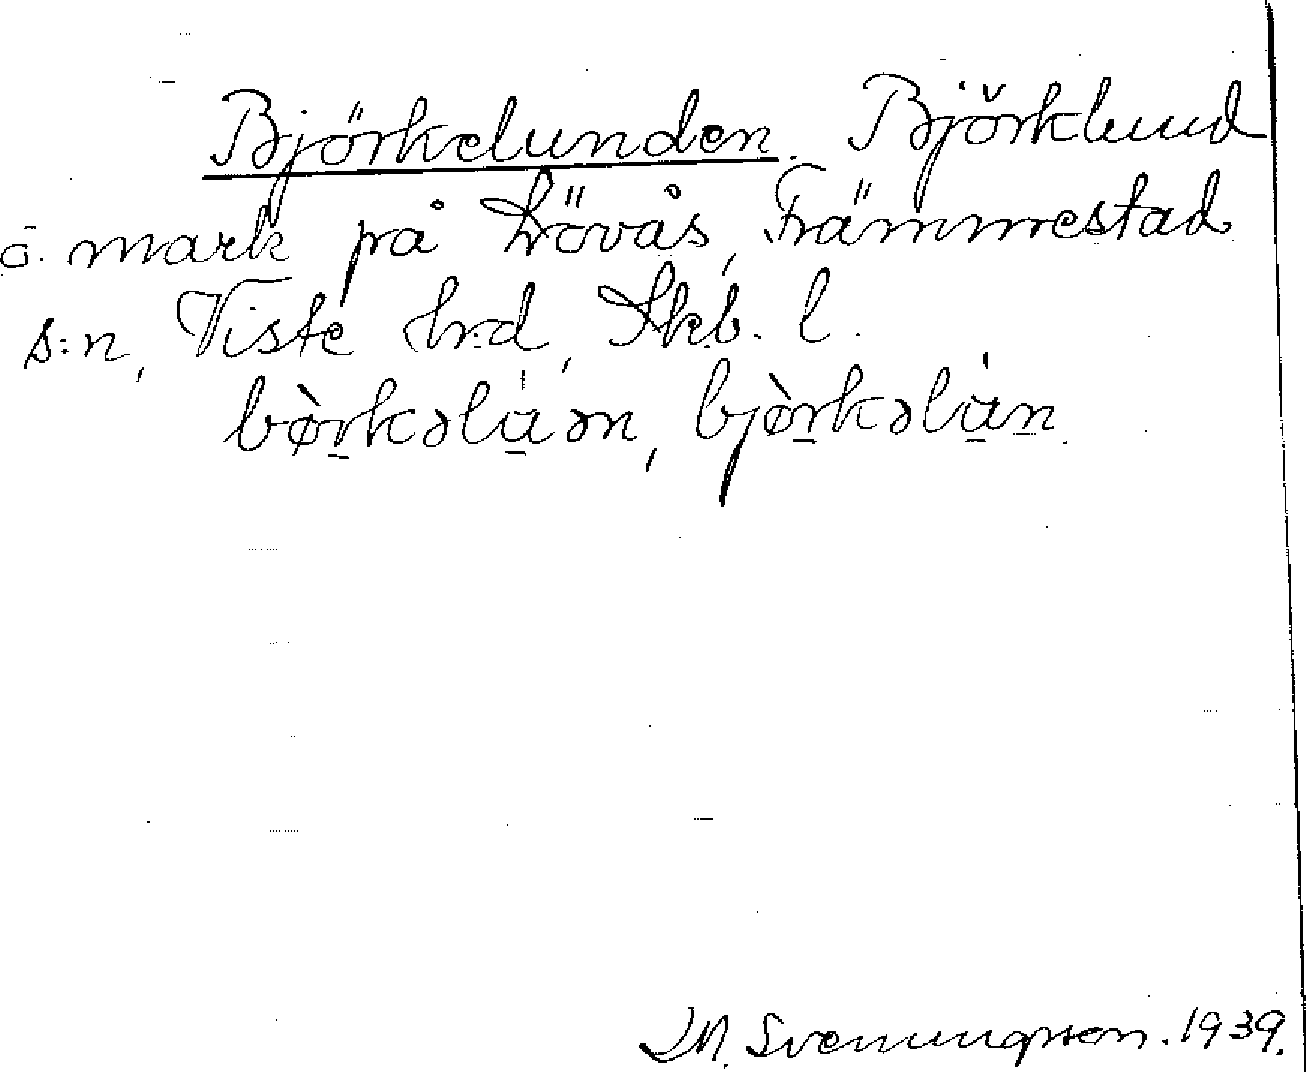 Björkelunden. Björklund
o. mark på Lövås, Främmestad
s:n, Viste hrd, Skb. l.
bø̀rkəláən, bjø̀rkəlán.
M. Svenungsson. 1939.